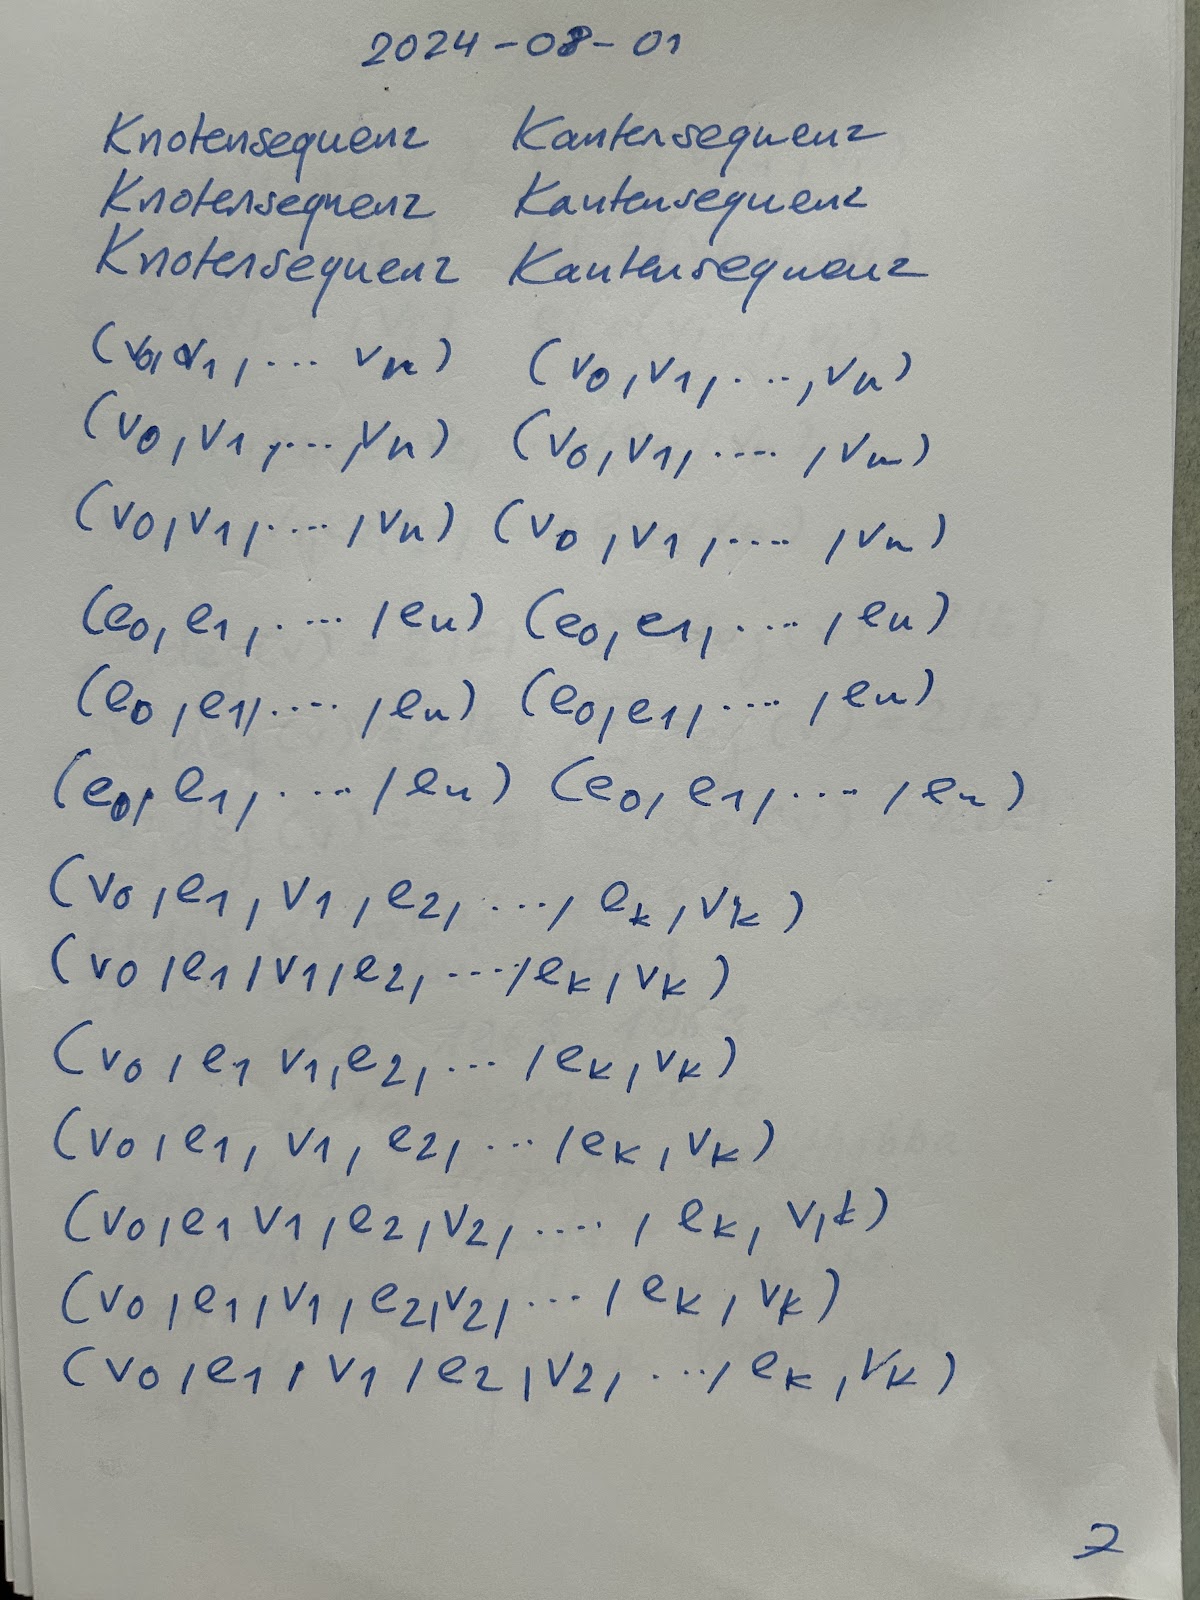 2024-08-01
Knotensequenz Kantensequenz
Knotensequenz Kantensequenz
Knotensequenz Kantensequenz
(v0, v1, ... vn) (v0, v1, ..., vn)
(v0, v1, ..., vn) (v0, v1, ...., vn)
(v0, v1, ...., vn) (v0, v1, ...., vn)
(e0, e1, ...., en) (e0, e1, ...., en)
(e0, e1, ...., en) (e0, e1, ...., en)
(e0, e1, ...., en) (e0, e1, ...., en)
(v0, e1, v1, e2, ..., ek, vk)
(v0, e1, v1, e2, ...., ek, vk)
(v0, e1 v1, e2, ..., ek, vk)
(v0, e1, v1, e2, ..., ek, vk)
(v0, e1 v1, e2, v2, ...., ek, v,k)
(v0, e1, v1, e2, v2, ..., ek, vk)
(v0, e1, v1, e2, v2, ..., ek, vk)
7